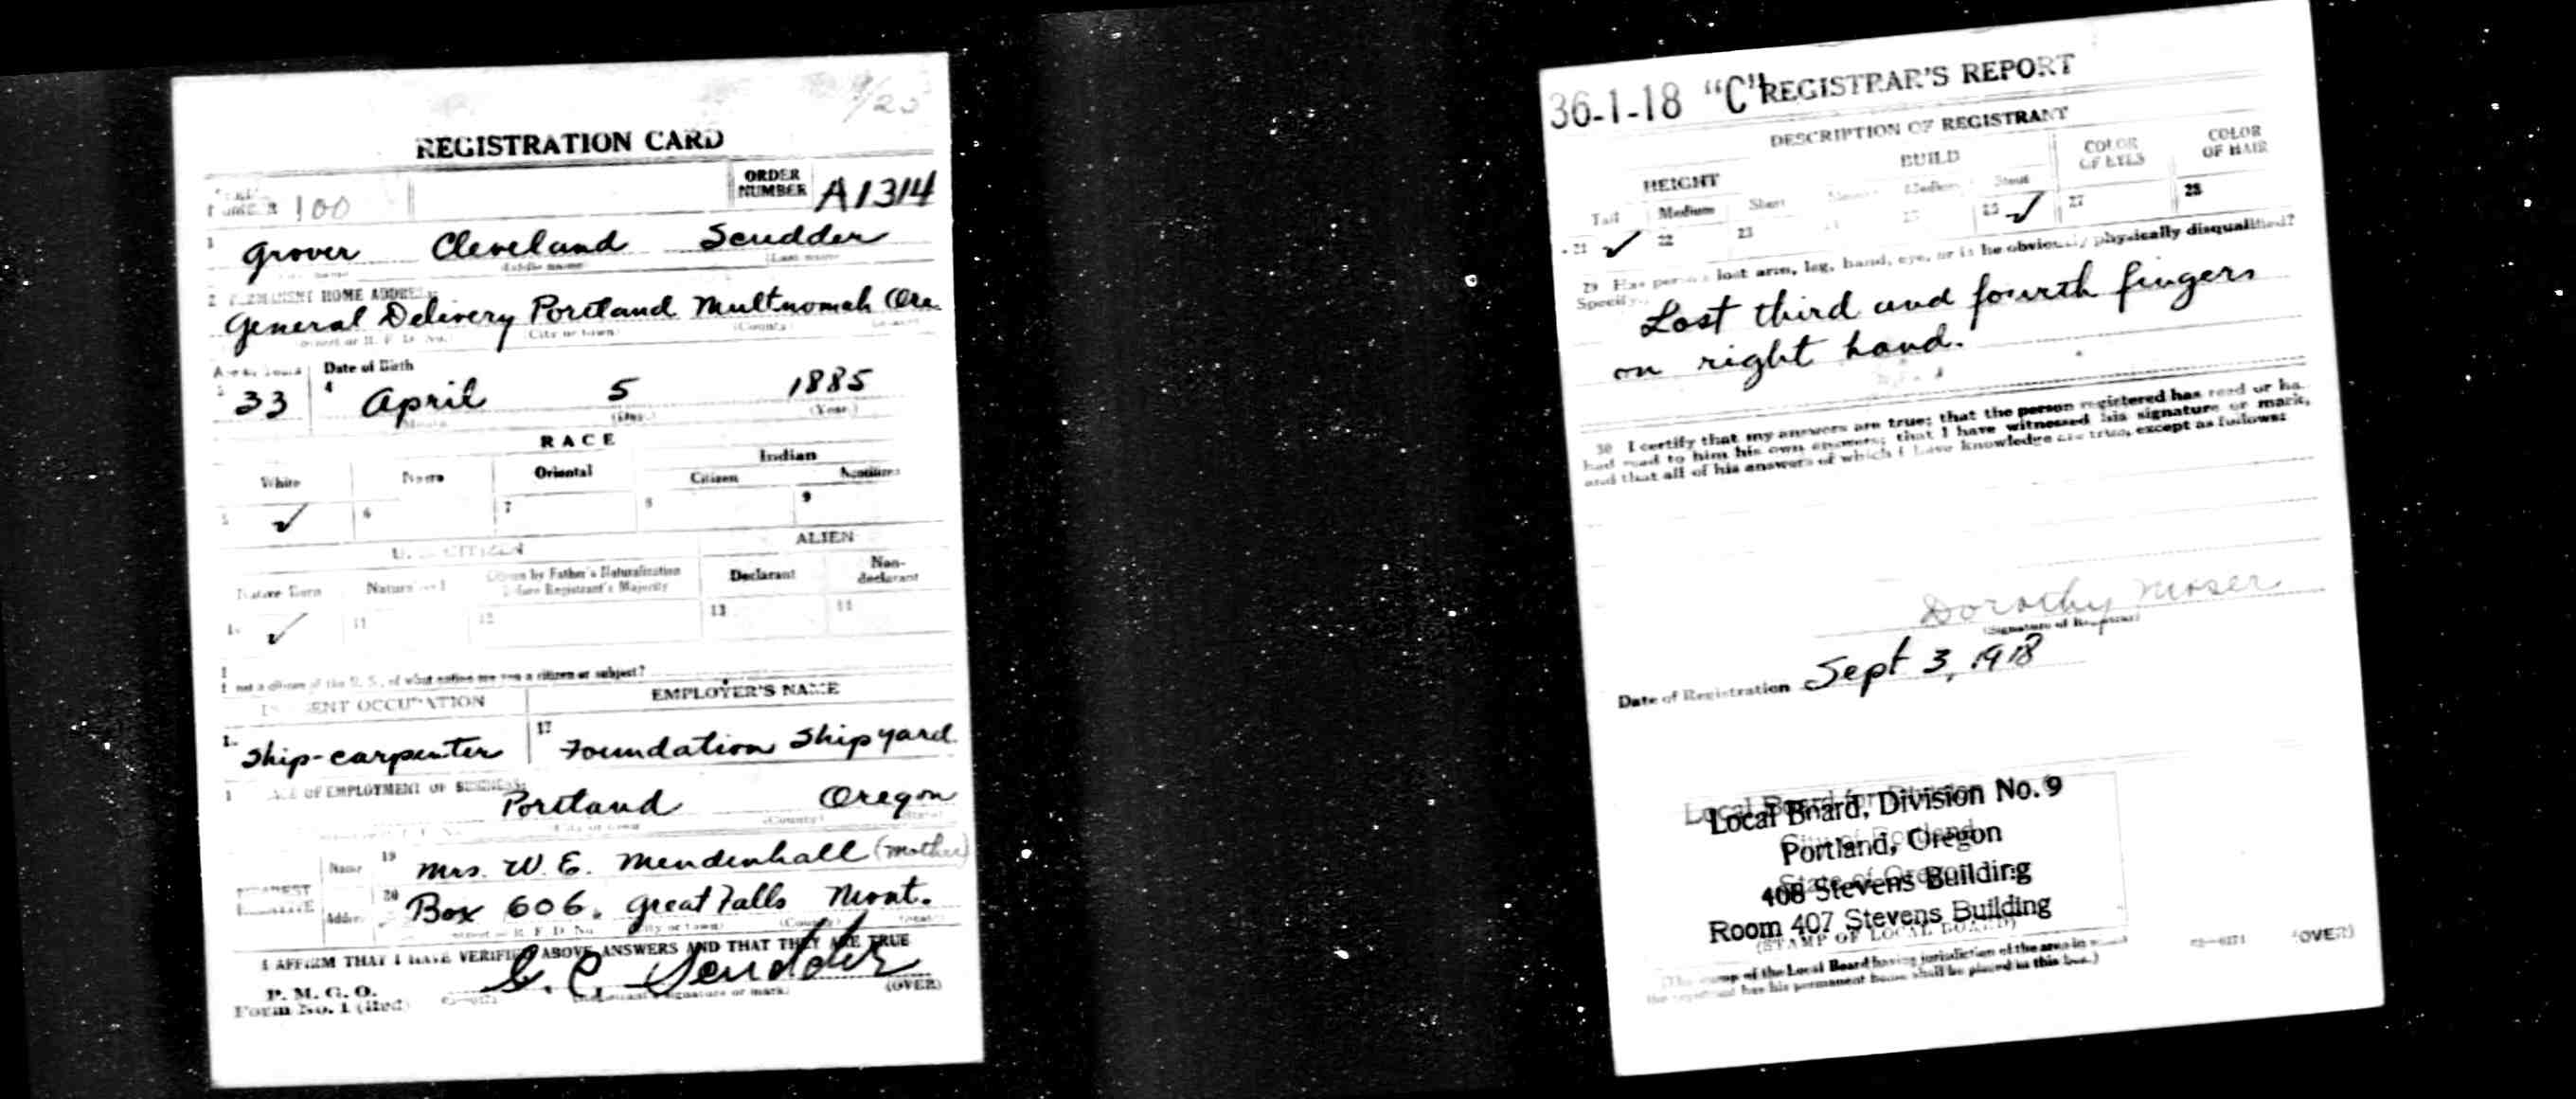 1/25
REGISTRATION CARD
100 ORDER NUMBER A1314
1 Grover Cleveland Scudder
(Last name)
2 PERMANENT HOME ADDRESS:
General Delivery Portland Multnomah Ore.
(City or town) (County)
Date of Birth
33 4 April 5 1885
(Month) (Day) (Year)
RACE
White Negro Oriental Indian
Citizen Noncitizen
5 ✓ 6 7 8 9
U. S. CITIZEN ALIEN
Native Born Naturalized Citizen by Father's Naturalization Before Registrant's Majority Declarant Non-declarant
✓ 11 12 13 14
not a citizen of the U. S., of what nation are you a citizen or subject?
PRESENT OCCUPATION EMPLOYER'S NAME
Ship-carpenter 17 Foundation Shipyard
PLACE OF EMPLOYMENT OR BUSINESS:
Portland Oregon
(City or town) (County) (State)
NEAREST RELATIVE Name 19 Mrs. W. E. Mendenhall (Mother)
Address 20 Box 606. Great Falls Mont.
I AFFIRM THAT I HAVE VERIFIED ABOVE ANSWERS AND THAT THEY ARE TRUE
P. M. G. O.
Form No. 1 (Red) G. C. Scudder
(Registrant's signature or mark) (OVER)
36-1-18 "C" REGISTRAR'S REPORT
DESCRIPTION OF REGISTRANT
HEIGHT BUILD COLOR OF EYES COLOR OF HAIR
Tall Medium Short Slender Medium Stout
21 ✓ 22 23 25 ✓ 27 28
29 Has person lost arm, leg, hand, eye, or is he obviously physically disqualified?
Specify.
Lost third and fourth fingers
on right hand.
30 I certify that my answers are true; that the person registered has read or has
had read to him his own answers; that I have witnessed his signature or mark,
and that all of his answers of which I have knowledge are true, except as follows:
Dorothy Moser
(Signature of Registrar)
Date of Registration Sept 3, 1918
Local Board for Division
Local Board, Division No. 9
City of Portland
Portland, Oregon
State of Oregon
408 Stevens Building
Room 407 Stevens Building
(STAMP OF LOCAL BOARD)
(The stamp of the Local Board having jurisdiction of the area in which
the registrant has his permanent home shall be placed in this box.)
(OVER)